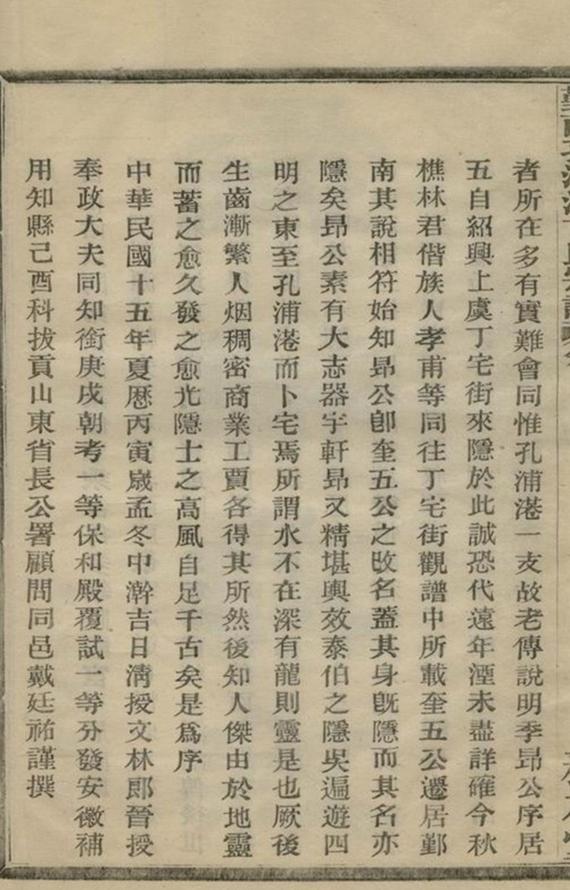 者所在多有實難會同惟孔浦港一支故老傳說明季昻公序居
五自紹興上虞丁宅街來隱於此誠恐代遠年湮未盡詳確今秋
樵林君偕族人孝甫等同往丁宅街觀譜中所載奎五公遷居鄞
南其說相符始知昻公卽奎五公之改名蓋其身旣隱而其名亦
隱矣昻公素有大志器宇軒昻又精堪輿效泰伯之隱吳遍遊四
明之東至孔浦港而卜宅焉所謂水不在深有龍則靈是也厥後
生齒漸繁人烟稠密商業工賈各得其所然後知人傑由於地靈
而蓄之愈久發之愈光隱士之高風自足千古矣是爲序
中華民國十五年夏曆丙寅歲孟冬中澣吉日淸授文林郞晉授
奉政大夫同知銜庚戌朝考一等保和殿覆試一等分發安徽補
用知縣己酉科拔貢山東省長公署顧問同邑戴廷祐謹撰